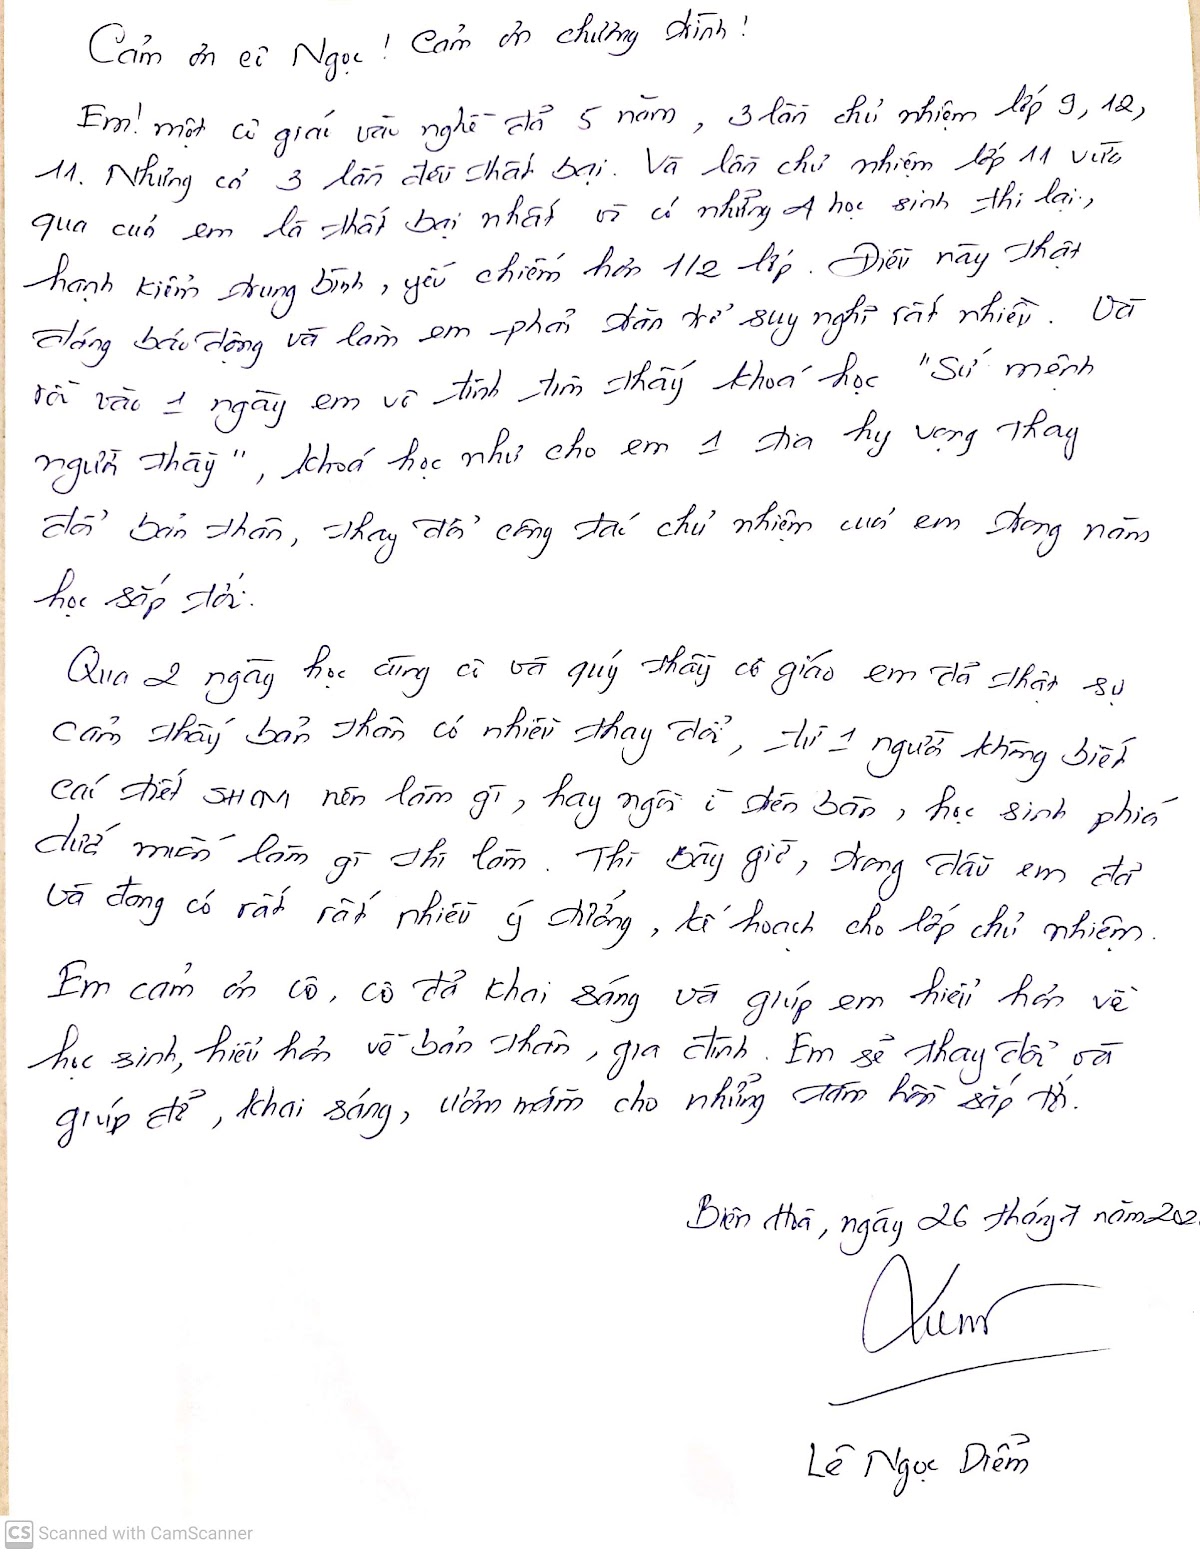 Cảm ơn cô Ngọc! Cảm ơn chương trình!
Em! một cô giáo vào nghề đã 5 năm, 3 lần chủ nhiệm lớp 9, 12,
11. Nhưng cả 3 lần đều thất bại. Và lần chủ nhiệm lớp 11 vừa
qua của em là thất bại nhất vì có những 4 học sinh thi lại,
hạnh kiểm trung bình, yếu chiếm hơn 1/2 lớp. Điều này thật
đáng báo động và làm em phải trăn trở suy nghĩ rất nhiều. Và
rồi vào 1 ngày em vô tình tìm thấy khoá học "Sứ mệnh
người thầy", khoá học như cho em 1 tia hy vọng thay
đổi bản thân, thay đổi công tác chủ nhiệm của em trong năm
học sắp tới.
Qua 2 ngày học cùng cô và quý thầy cô giáo em đã thật sự
cảm thấy bản thân có nhiều thay đổi, từ 1 người không biết
cái tiết SHCN nên làm gì, hay ngồi ì trên bàn, học sinh phía
dưới muốn làm gì thì làm. Thì bây giờ, trong đầu em đã
và đang có rất rất nhiều ý tưởng, kế hoạch cho lớp chủ nhiệm.
Em cảm ơn cô, cô đã khai sáng và giúp em hiểu hơn về
học sinh, hiểu hơn về bản thân, gia đình. Em sẽ thay đổi và
giúp đỡ, khai sáng, ươm mầm cho những tâm hồn sắp tới.
Biên Hoà, ngày 26 tháng 7 năm 202
Lê Ngọc Diểm
CS Scanned with CamScanner